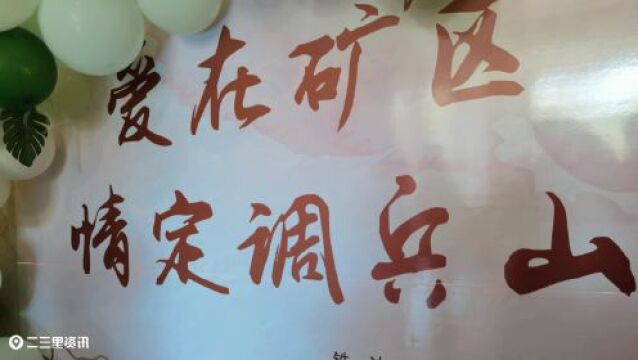 爱在矿区
情定调兵山
铁
二三里资讯